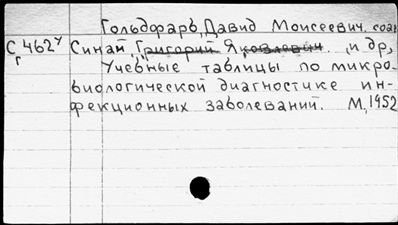 Гольдфарб, Давид Моисеевич. соав
С 462у Синай, Григорий Яковлевич и др,
г Учебные таблицы по микро-
биологической диагностике ин-
фекционных заболеваний. М, 1952